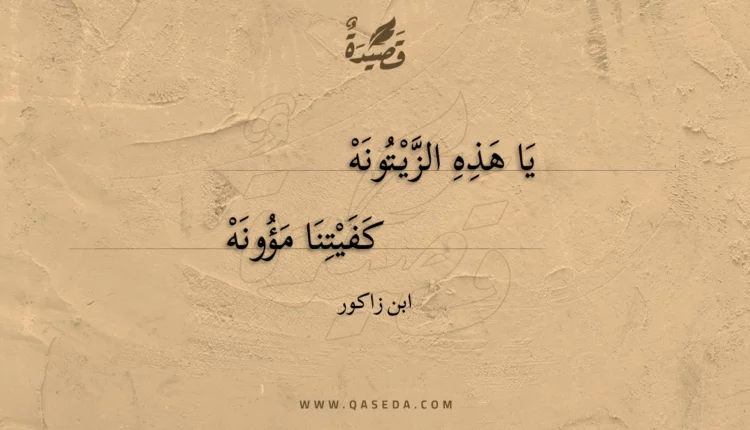 قَصِيْدَةٌ
يَا هَذِهِ الزَّيْتُونَهْ
كَفَيْتِنَا مَؤُونَهْ
ابن زاكور
WWW.QASEDA.COM